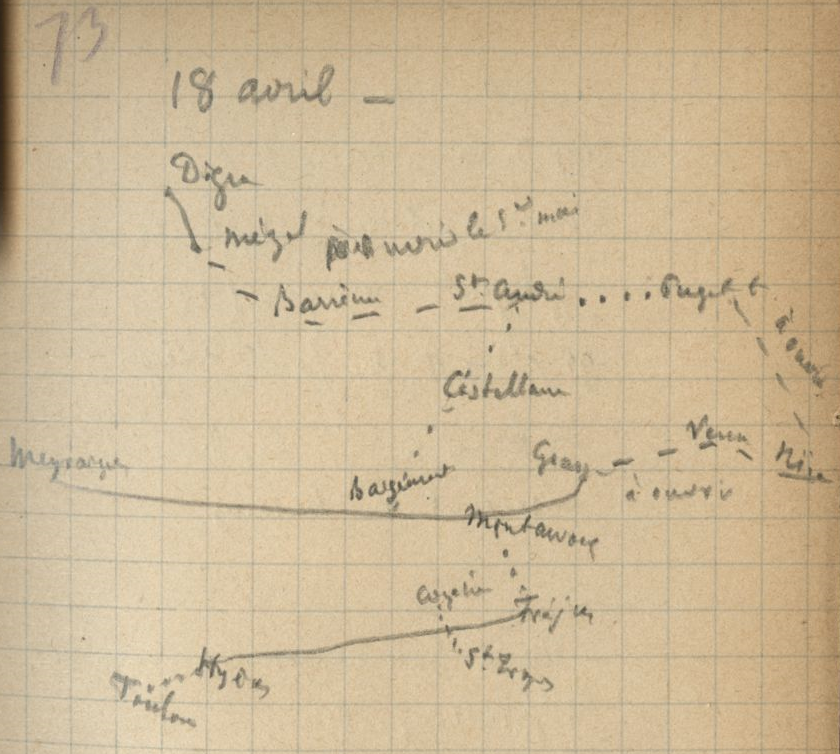 73
18 avril —
Digne
Mézel ouvrir le 1er mai
Barrême St. André Puget
à ouvrir
Castellane
Meyrargues Grasse Vence Nice
Bargémont à ouvrir
Montauroux
Cogolin Fréjus
Hyères St Tropez
Toulon